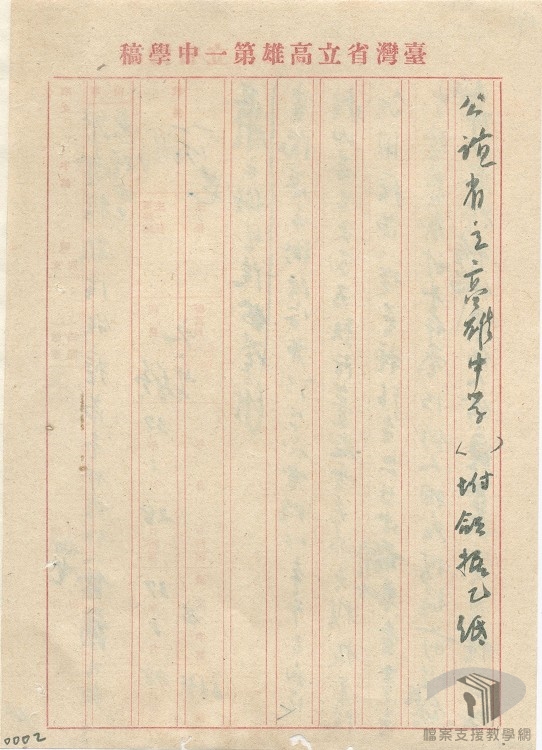 臺灣省立高雄第一中學稿
公誼省立高雄中學()附領据乙紙
0002
檔案支援教學網